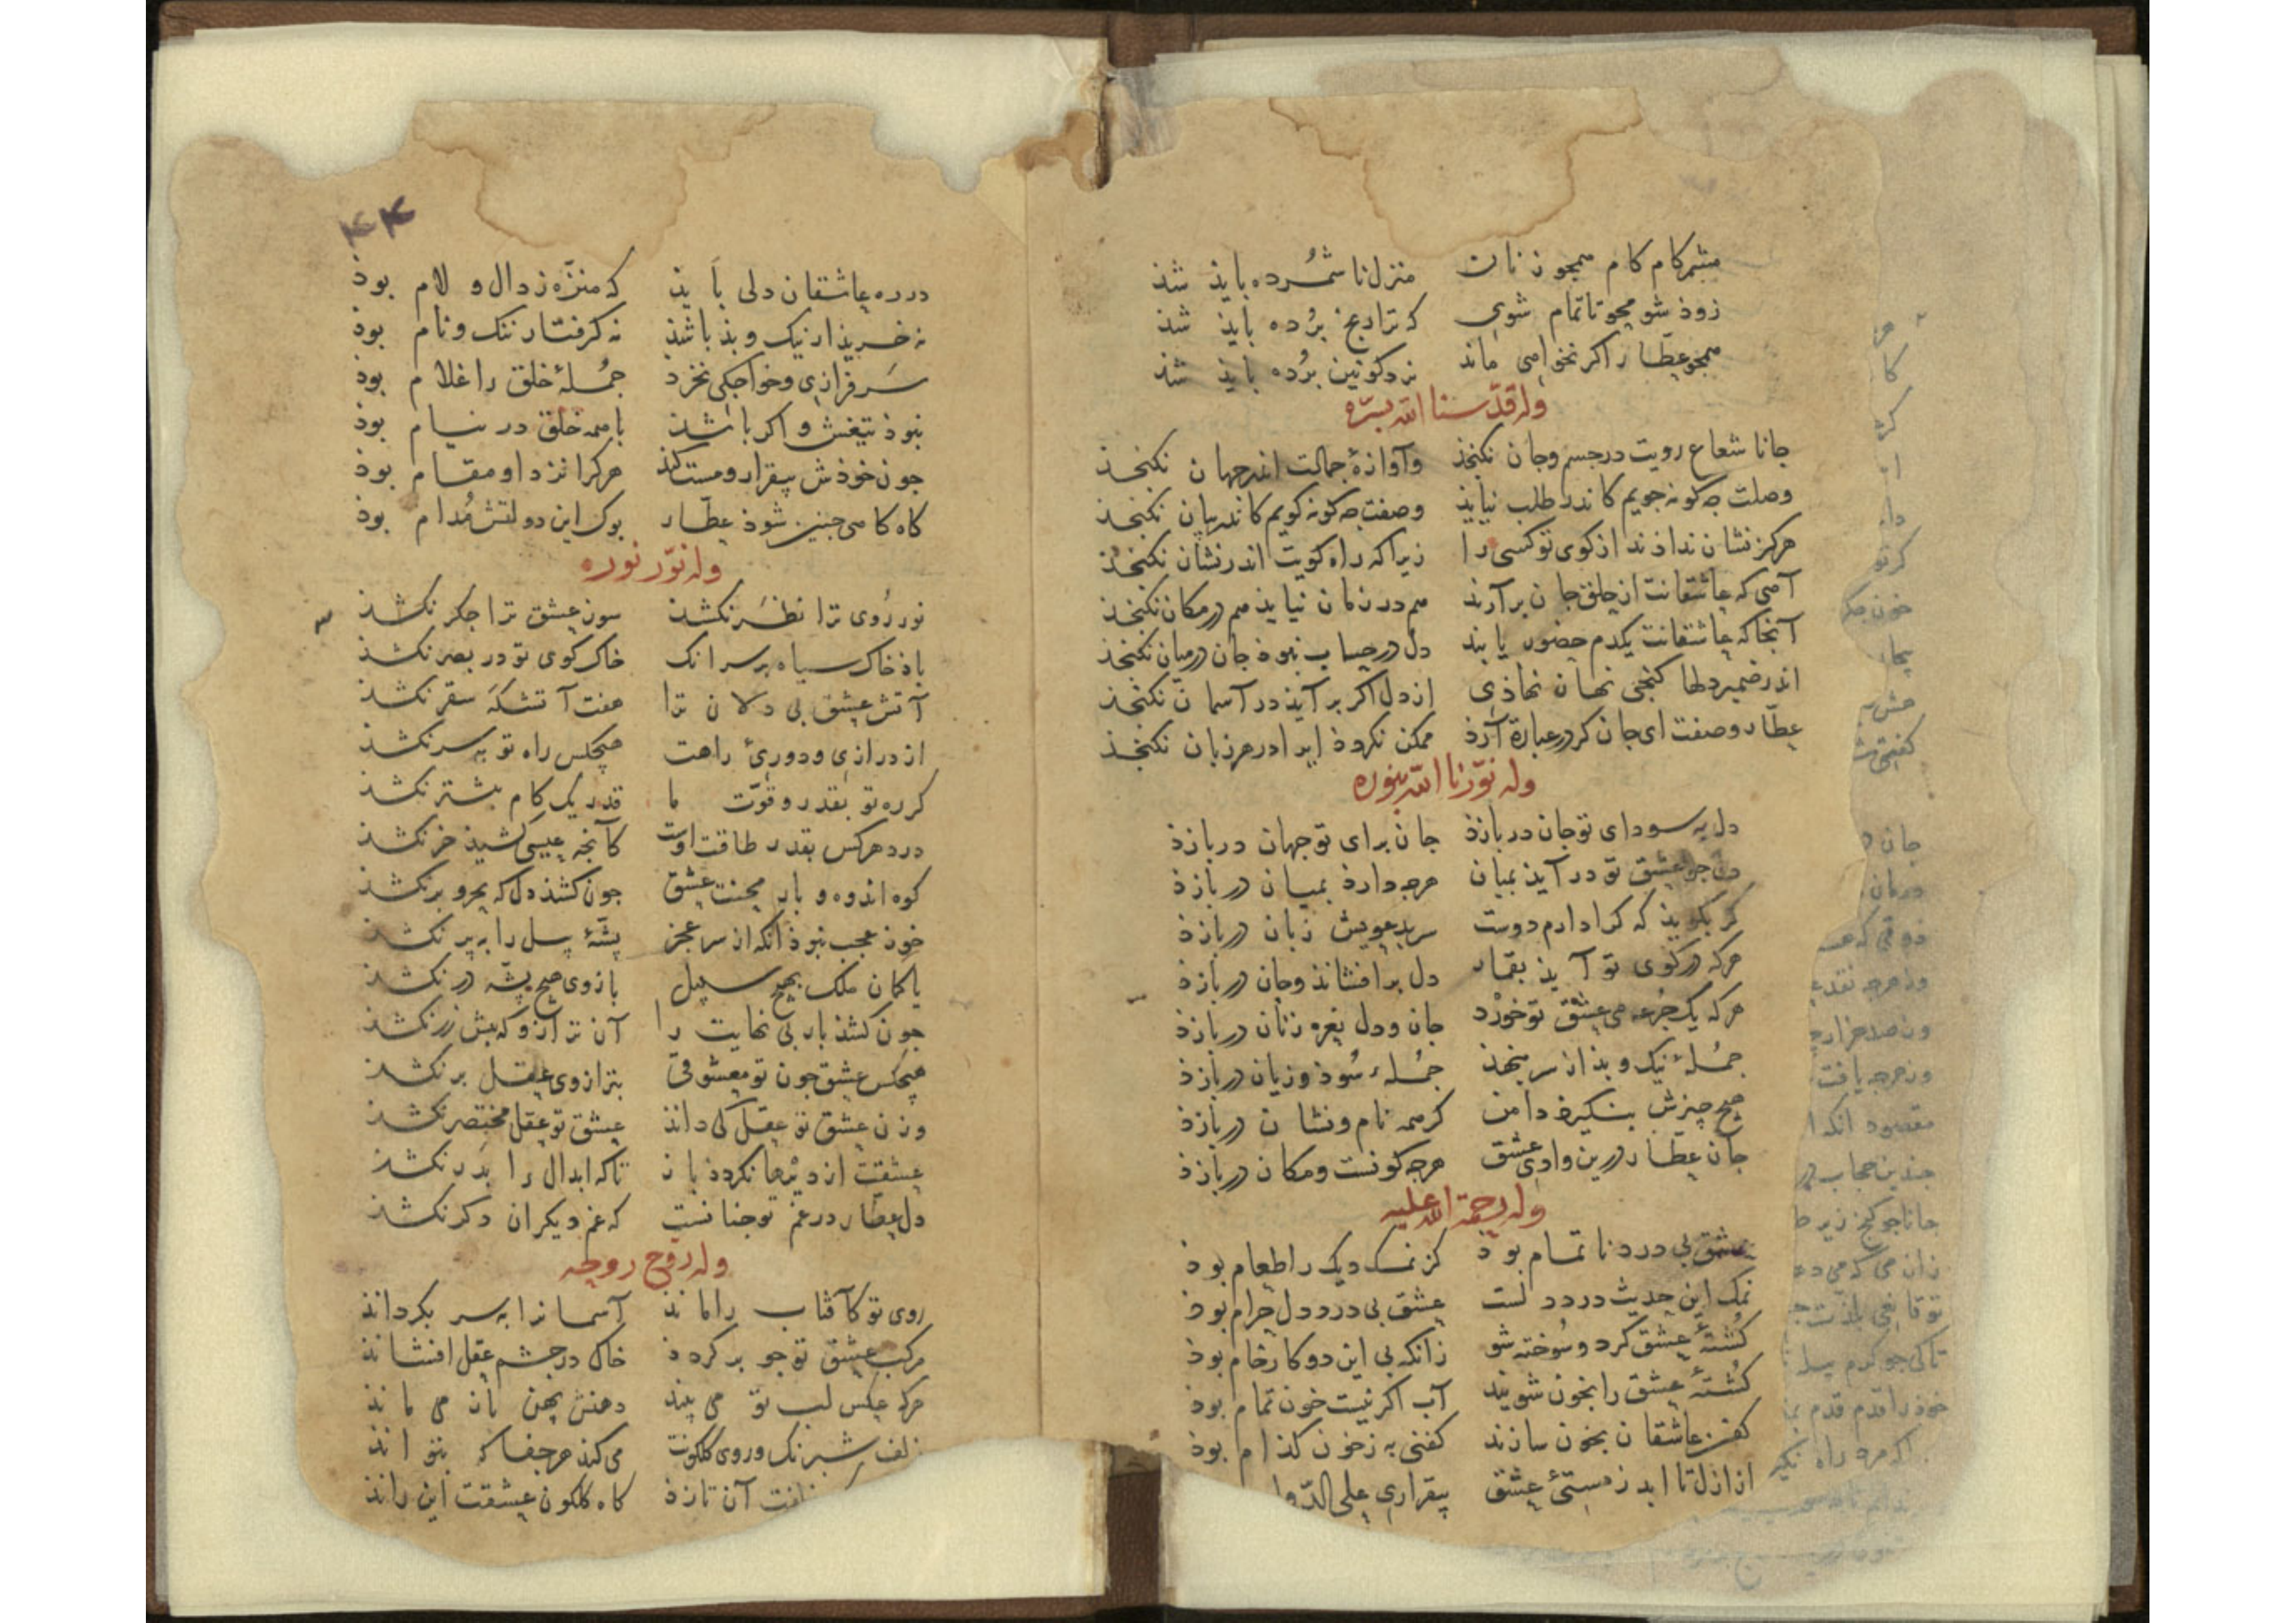 مشمر کام کام همجو زنان منزل نا شمرده باید شذ
زوذ شو محو تا تمام شوی که ترا رنج برده باید شذ
همجو عطار اکر نخواهی ماند نرد کونین برده باید شذ
وله قدسنا الله بسره
جانا شعاع رویت در جسم و جان نکنجذ وآوازهٔ جمالت اندر جهان نکنجذ
وصلت جه کونه جویم کاندر طلب نیایذ وصفت جه کونه کویم کاندر بیان نکنجذ
هرکز نشان نداذند از کوی تو کسی را زیرا که راه کویت اندر نشان نکنجذ
آهی که عاشقانت از حلق جان برآرند هم در زمان نیایذ هم در مکان نکنجذ
آنجا که عاشقانت یکدم حضور یابند دل در حساب نبوذ جان در میان نکنجذ
اندر ضمیر دلها کنجی نهان نهاذی از دل اکر برآیذ در آسمان نکنجذ
عطار وصف‍ت ای جان کر در عبارة آرذ ممکن نکردذ ایرا در هر زبان نکنجذ
وله نورنا الله بنوره
دل به سودای تو جان دربازذ جان برای تو جهان دربازذ
دل جو عشق تو درآیذ بمیان هرجه دارذ بمیان دربازذ
کر بکویذ که کرا دارم دوست سر بدعویش زبان دربازذ
هرکه در کوی تو آیذ بقمار دل برافشانذ وجان دربازذ
هرکه یک جرعه می عشق تو خورد جان و دل نعره زنان دربازذ
جملهٔ نیک و بذ از سر بنهذ جملهٔ سوذ و زیان دربازذ
هیج چیزش بنکیرذ دامن کر همه نام و نشان دربازذ
جان عطار درین وادی عشق هرجه کونست و مکان دربازذ
وله رحمة الله علیه
عشق بی درد نا تمام بوذ کز نمک دیک را طعام بوذ
نمک این حدیث درد دلست عشق بی درد دل حرام بوذ
کشتهٔ عشق کرد و سوخته شو زانکه بی این دو کار خام بوذ
کشتهٔ عشق را بخون شویند آب اکر نیست خون تمام بوذ
کفن عاشقان بخون سازند کفنی به زخون کذام بوذ
از ازل تا ابد ز مستئ عشق بیقراری علی الدوا
۴۴
در ره عاشقان دلی بایذ که منزه ز دال و لام بوذ
نه خریذار نیک و بذ باشذ نه کرفتار ننک و نام بوذ
سرفرازی و خواجکی نخرد جملهٔ خلق را غلام بوذ
نبوذ تیغش و اکر باشذ با همه خلق در نیام بوذ
جون خوذش بیقرار و مست کنذ هرکرا نزد او مقام بوذ
کاه کاهی جنین شوذ عطار بوک این دولتش مدام بوذ
وله نور نوره
نور روی ترا نظر نکشذ سوز عشق ترا جکر نکشذ
باذ خاک سیاه بر سر انک خاک کوی تو در بصر نکشذ
آتش عشق بی دلان ترا هفت آتشکه سقر نکشذ
از درازی و دورئ راهت هیجکس راه تو بسر نکشذ
کر ره تو بقدر و قوت ما قدر یک کام بیشتر نکشذ
درد هرکس بقدر طاقت اوست کآنجه عیسی کشیذ خر نکشذ
کوه اندوه و بار محنت عشق جون کشذ دل که بحر و بر نکشذ
خوذ عجب نبوذ آنکه از سر عجز پشهٔ پیل را به پر نکشذ
با کمان ملک بهیج سبیل بازوی هیج پشه در نکشذ
جون کشذ بار بی نهایت را آن ترازو که بیش زر نکشذ
هیجکس عشق جون تو معشوقی بترازوی عقل بر نکشذ
وزن عشق تو عقل کی داند عشق تو عقل مختصر نکشذ
عشقت از دیرها نکردذ باز تا که ابدال را بدر نکشذ
دل عطار در غم تو جنانست که غم دیکران دکر نکشذ
وله روح روحه
روی تو کآفتاب را ماند آسمانرا به سر بکرداند
مرکب عشق تو جو برکردذ خاک در جشم عقل افشاند
هرکه عکس لب تو می بیند دهنش بهن باز می ماند
زلف شبرنک و روی کلکونت می کند هرجفا که بتواند
آن تازذ کاه کلکون عشقت این راند